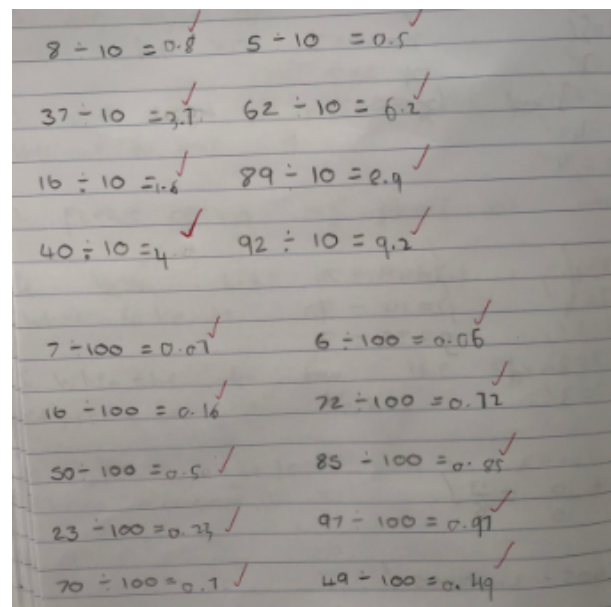 8 ÷ 10 = 0.8 5 ÷ 10 = 0.5
37 ÷ 10 = 3.7 62 ÷ 10 = 6.2
16 ÷ 10 = 1.6 89 ÷ 10 = 8.9
40 ÷ 10 = 4 92 ÷ 10 = 9.2
7 ÷ 100 = 0.07 6 ÷ 100 = 0.06
16 ÷ 100 = 0.16 72 ÷ 100 = 0.72
50 ÷ 100 = 0.5 85 ÷ 100 = 0.85
23 ÷ 100 = 0.23 97 ÷ 100 = 0.97
70 ÷ 100 = 0.7 49 ÷ 100 = 0.49